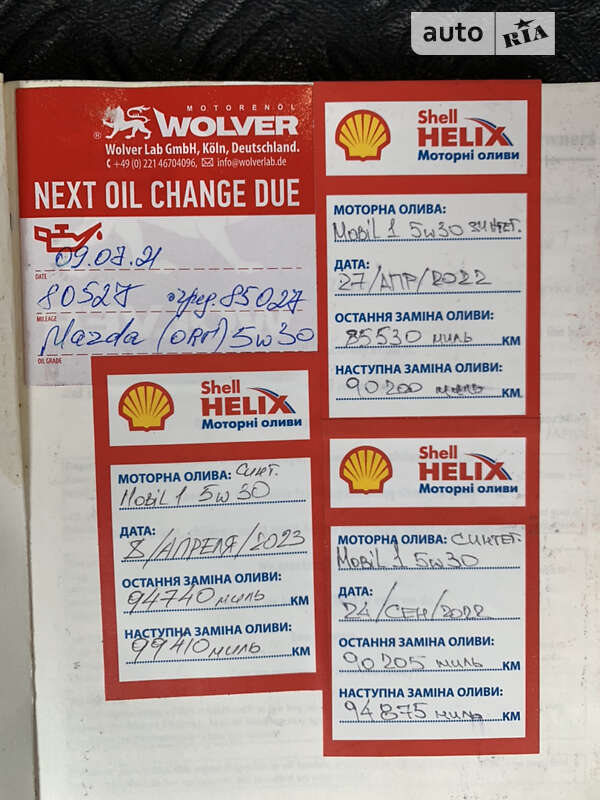 auto RIA
MOTORENÖL
® WOLVER
Wolver Lab GmbH, Köln, Deutschland.
+49 (0) 221 46704096, info@wolverlab.de
NEXT OIL CHANGE DUE
09.07.21
DATE
80527 85027
MILEAGE
Mazda (ORM) 5w30
OIL GRADE
Shell
HELIX
Моторні оливи
МОТОРНА ОЛИВА:
Mobil 1 5w30 синтет.
ДАТА:
27/АПР/2022
ОСТАННЯ ЗАМІНА ОЛИВИ:
85530 миль КМ
НАСТУПНА ЗАМІНА ОЛИВИ:
90200 миль КМ
Shell
HELIX
Моторні оливи
МОТОРНА ОЛИВА: Синт.
Mobil 1 5w30
ДАТА:
8/АПРЕЛЯ/2023
ОСТАННЯ ЗАМІНА ОЛИВИ:
94740 миль КМ
НАСТУПНА ЗАМІНА ОЛИВИ:
99410 миль КМ
Shell
HELIX
Моторні оливи
МОТОРНА ОЛИВА: Синтет.
Mobil 1 5w30
ДАТА:
24/СЕН/2022
ОСТАННЯ ЗАМІНА ОЛИВИ:
90205 миль КМ
НАСТУПНА ЗАМІНА ОЛИВИ:
94875 миль КМ